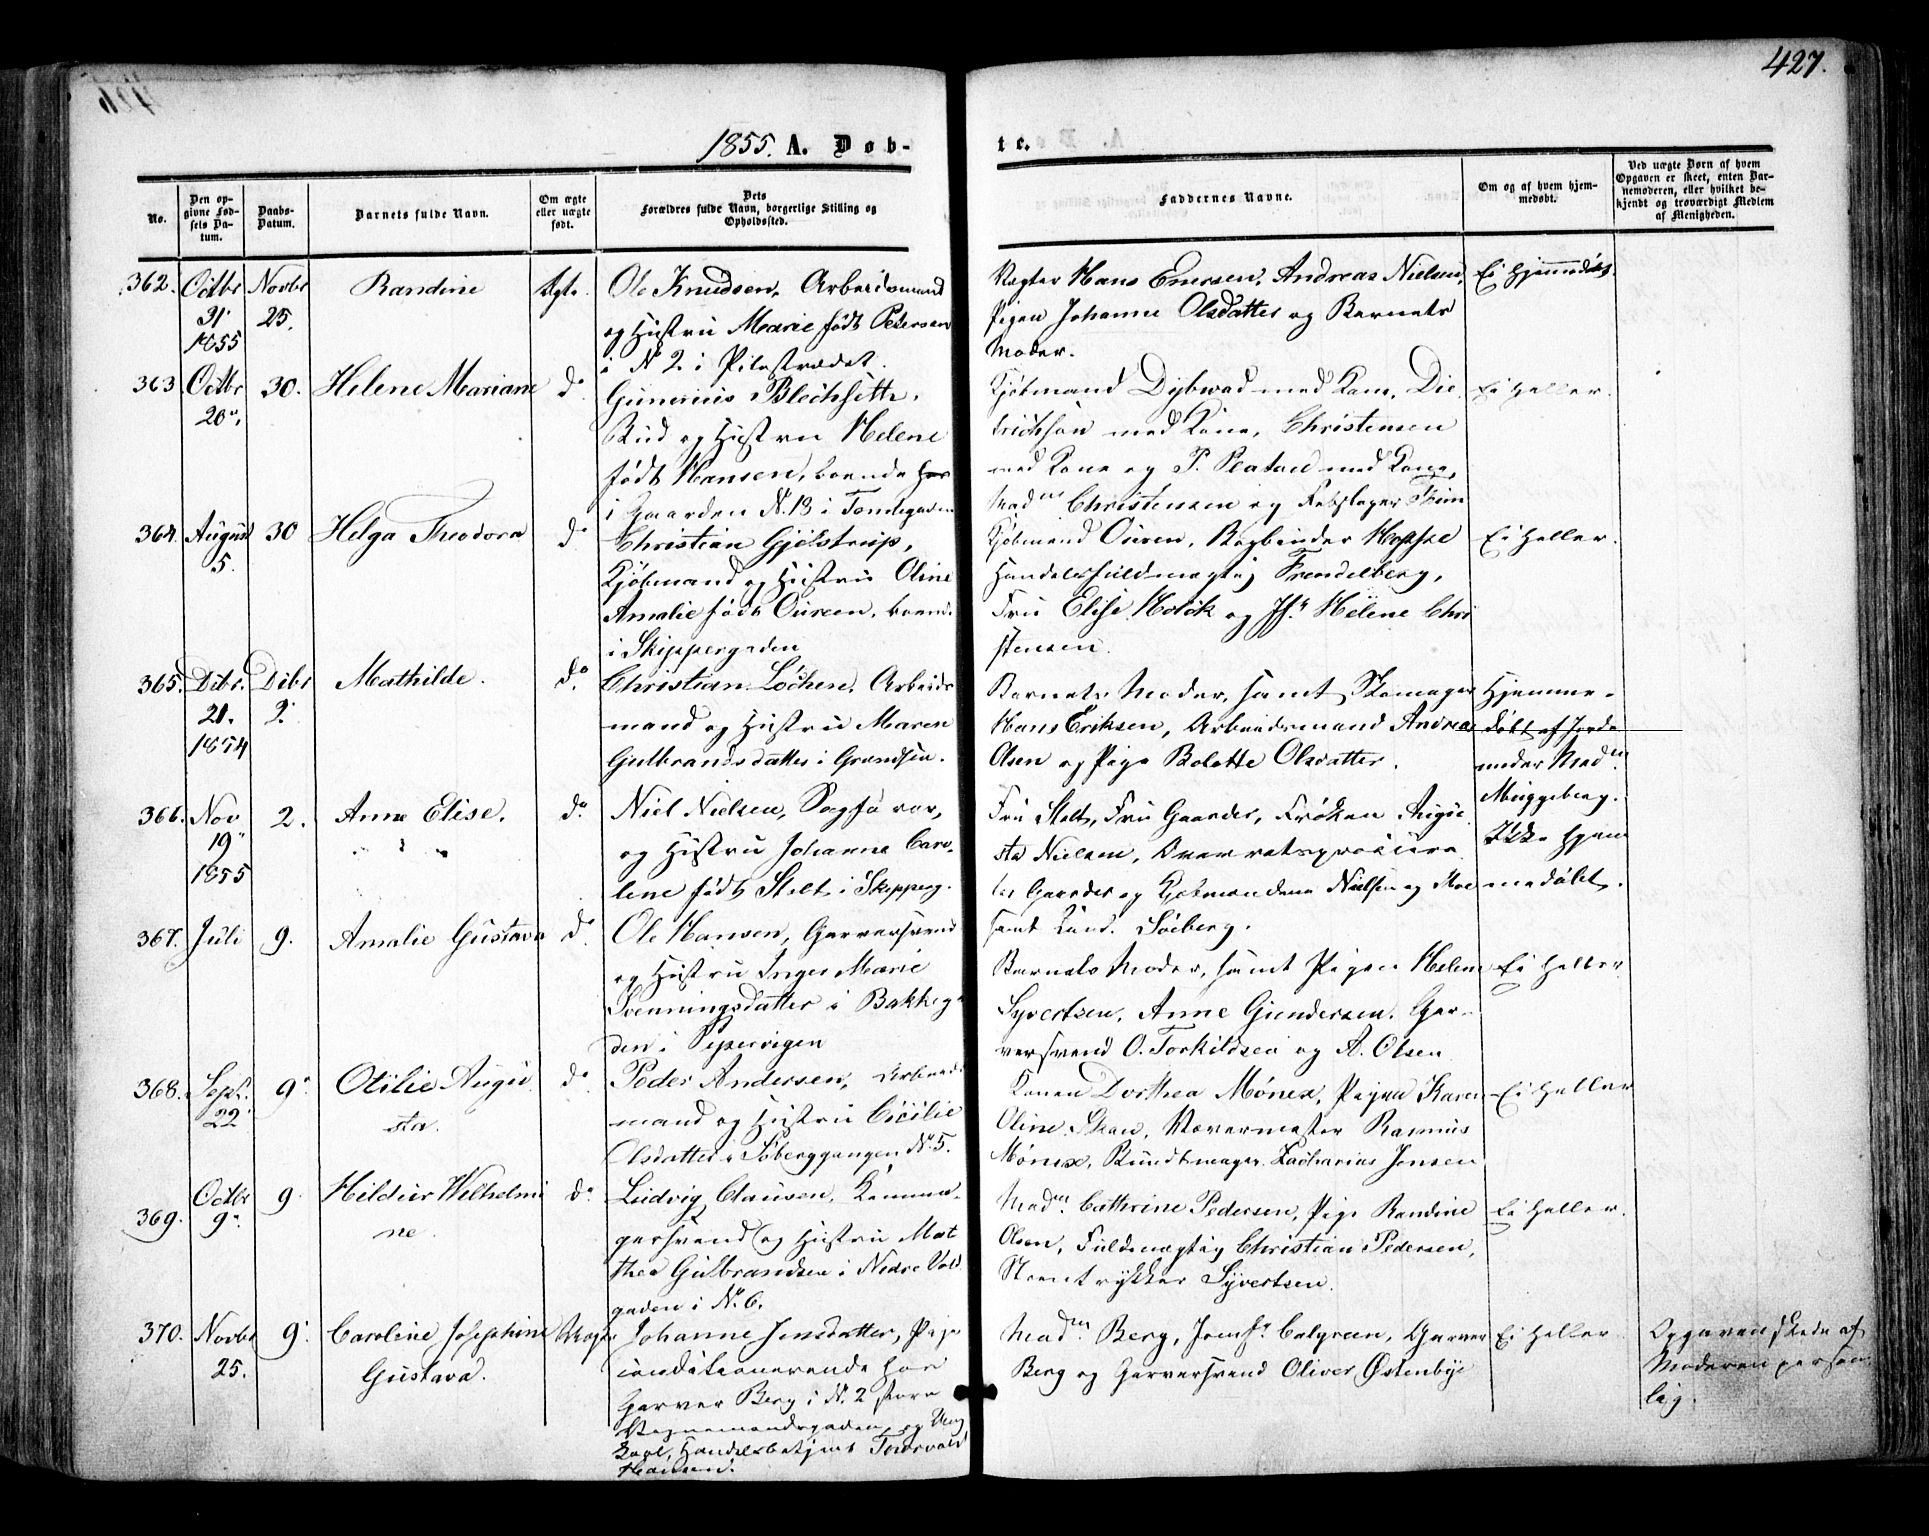 427.
1855. A. Døb-
te.
No.
Den opgivne Fødsels Datum.
Daabs-Datum.
Barnets fulde Navn.
Om ægte eller uægte født.
Dets Forældres fulde Navn, borgerlige Stilling og Opholdssted.
Faddernes Navne.
Om og af hvem hjemmedøbt.
Ved uægte Børn af hvem Opgaven er skeet, enten Barnemoderen, eller hvilket bekjendt og troværdigt Medlem af Menigheden.
362. Octbr 31' 1855 Novbr 25. Randine Ægte
Ole Knudsen, Arbeidsmand
og Hustru Marie født Petersen
i N 2 i Pilestrædet.
Hans Enersen, Andreas Nielsen,
Pigen Johanne Olsdatter og Barnets
Moder.
Ei hjemmedøbt.
363 Octbr 20. 30. Helene Mariane do
Gunerius Blechsett,
og Hustru Helene
født Hansen, boende her
i Gaarden N. 13 i
Kjøbmand Dybwad med Kone, Die
trichson med Kone, Christensen
med Kone og P. med Kone,
Madm Christensen og
Ei heller.
364. August 5. 30 Helga Theodora do
Christian Gjølstrup,
Kjøbmand og Hustru Oline
Amalie født Ouren, boende
i Skippergaden
Kjøbmand Ouren, Bogbinder Hoppe
Handelsfuldmægtig Trendelberg,
Fru Elise Holck og Jfr Helene Chri
stensen.
Ei heller.
365. Dcbr. 21. 1854 Dcbr 2. Mathilde. do
Christian Løchen, Arbeids
mand og Hustru Maren
Gulbrandsdatter i Grændsen.
Barnets Moder, samt Skomager
Hans Eriksen, Arbeidsmand Andreas
Olsen og Pige Bolette Olsdatter.
Hjemme-
døbt af Jorde
moder Madm
Muggeberg.
366. Nov 19 1855 2. Anne Elise. do
Niel Nielsen, Sagfører,
og Hustru Johanne Caro-
line født Stolt i Skipperg.
Fru Stolt, Fru Gaarder, Frøken Augu
sta Nielsen, Overretsprocura
tor Gaarder og Kjøbmændene Nielsen og Moe
samt Cand. Søeberg.
Ikke hjem
medøbt.
367. Juli 9. Amalie Gustava do
Ole Hansen, Garversvend
og Hustru Inger Marie
Svenningsdatter i Bakkeg
den i Pipervigen
Barnets Moder, samt Pigen Helene
Syvertsen, Anne Gundersen, Gar-
versvend O. Torkildsen og A. Olsen
Ei heller
368. Sept. 22 9 Otilie Augu
sta. do
Peder Andersen, Arbeids
mand og Hustru Cicilie
Olsdatter i Søberggangen N. 5.
Konen Dorthea Mønex, Pigen Karen
Oline Skou, Vævermester Rasmus
Mønex, Bundtmager Zacharias Jensen
Ei heller
369. Octbr 9. 9. Hildur Wilhelmi
ne. do
Ludvig Clausen, Kamma-
gersvend og Hustru Mat
thea Gulbrandsen i Nedre Vold
gaden i N. 6.
Madm Cathrine Pedersen, Pige Randine
Olsen, Fuldmægtig Christian Pedersen,
Steentrykker Syvertsen.
Ei heller.
370. Novbr 25. 9. Caroline Josephine
Gustava. Uægte
Johanne Jensdatter, Pige
conditionerende hos
Garver Berg i N. 2 store
Vognmandsgaden, og Ung
karl, Handelsbetjent Thorvald
Hansen.
Madm Berg, Jomfr Calgreen, Garver
Berg og Garversvend Oliver Østenbye
Ei heller
Opgaven skede af
Moderen person
lig.